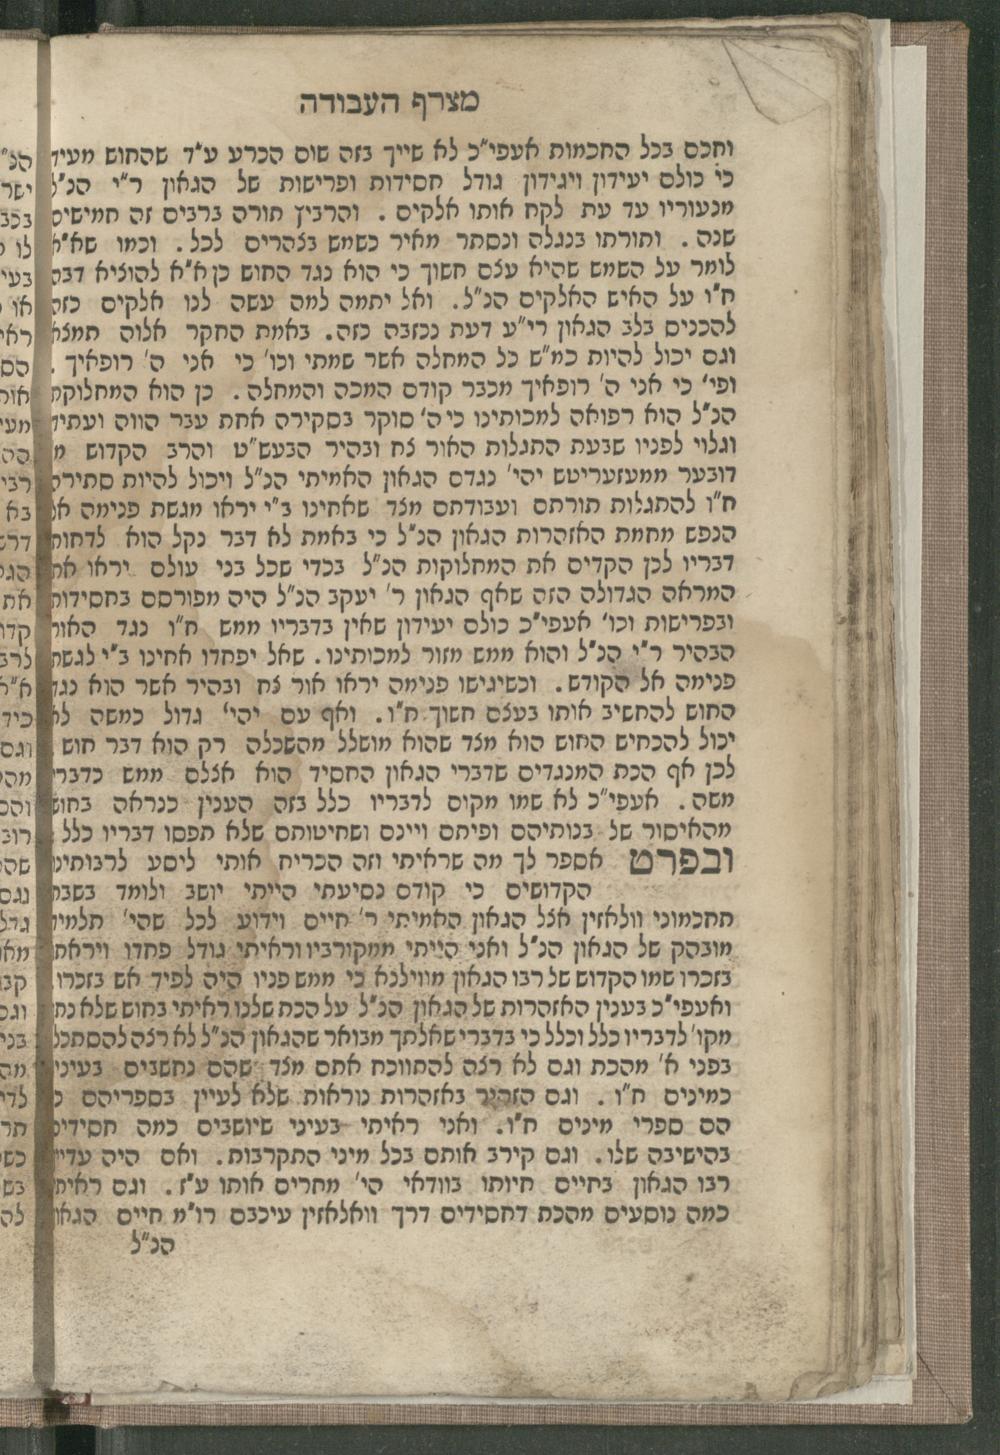 מצרף העבודה
וחכם בכל החכמות אעפי״כ לא שייך בזה שום הכרע ע״ד שהחוש מעיד
כי כולם יעידון ויגידון גודל חסידות ופרישות של הגאון ר״י הנ״ל
מנעוריו עד עת לקח אותו אלקים . והרביץ תורה ברבים זה חמישים
שנה . ותורתו בנגלה ונסתר מאיר כשמש בצהרים לכל . וכמו שא״א
לומר על השמש שהיא עצם חשוך כי הוא נגד החוש כן א״א להוציא דבה
ח״ו על האיש האלקים הנ״ל . ואל יתמה למה עשה לנו אלקים כזה
להכניס בלב הגאון רי״ע דעת נכזבה כזה . באמת החקר אלוה תמצא
וגם יכול להיות כמ״ש כל המחלה אשר שמתי וכו' כי אני ה' רופאיך .
ופי' כי אני ה' רופאיך מכבר קודם המכה והמחלה . כן הוא המחלוקת
הנ״ל הוא רפואה למכותינו כי ה' סוקר בסקירה אחת עבר הווה ועתיד
וגלוי לפניו שבעת התגלות האור צח ובהיר הבעש״ט והרב הקדוש מ
דובער ממעזעריטש יהי' נגדם הגאון האמיתי הנ״ל ויכול להיות סתירה
ח״ו להתגלות תורתם ועבודתם מצד שאחינו ב״י יראו מגשת פנימה אל
הנפש מחמת האזהרות הגאון הנ״ל כי באמת לא דבר נקל הוא לדחות
דבריו לכן הקדים את המחלוקות הנ״ל בכדי שכל בני עולם יראו את
המראה הגדולה הזה שאף הגאון ר' יעקב הנ״ל היה מפורסם בחסידות
ובפרישות וכו' אעפי״כ כולם יעידון שאין בדבריו ממש ח״ו נגד האור
הבהיר ר״י הנ״ל והוא ממש מזור למכותינו . שאל יפחדו אחינו ב״י לגשת
פנימה אל הקודש . וכשיגישו פנימה יראו אור צח ובהיר אשר הוא נגד
החוש להחשיב אותו בעצם חשוך ח״ו . ואף עם יהי' גדול כמשה לא
יכול להכחיש החוש הוא מצד שהוא מושלל מהשכלה רק הוא דבר חוש .
לכן אף הכת המנגדים שדברי הגאון החסיד הוא אצלם ממש כדברי
משה . אעפי״כ לא שמו מקום לדבריו כלל בזה הענין כנראה בחוש
מהאיסור של בנותיהם ופיתם ויינם ושחיטותם שלא תפסו דבריו כלל .
ובפרט אספר לך מה שראיתי וזה הכריח אותי ליסע לרבותינו
הקדושים כי קודם נסיעתי הייתי יושב ולומד בשבת
תחכמוני וולאזין אצל הגאון האמיתי ר' חיים וידוע לכל שהי' תלמיד
מובהק של הגאון הנ״ל ואני הייתי ממקורביו וראיתי גודל פחדו ויראתו
בזכרו שמו הקדוש של רבו הגאון מווילנא כי ממש פניו היה לפיד אש בזכרו .
ואעפי״כ בענין האזהרות של הגאון הנ״ל על הכת שלנו ראיתי בחוש שלא נתן
מקו' לדבריו כלל וכלל כי בדברי שאלתך מבואר שהגאון הנ״ל לא רצה להסתכל
בפני א' מהכת וגם לא רצה להתווכח אתם מצד שהם נחשבים בעיניו
כמינים ח״ו . וגם הזהיר באזהרות נוראות שלא לעיין בספריהם כי
הם ספרי מינים ח״ו . ואני ראיתי בעיני שיושבים כמה חסידים
בהישיבה שלו . וגם קירב אותם בכל מיני התקרבות . ואם היה עדיין
רבו הגאון בחיים חיותו בוודאי הי' מחרים אותו ע״ז . וגם ראיתי
כמה נוסעים מהכת דחסידים דרך וואלאזין עיכבם רו״מ חיים הגאון
הנ״ל